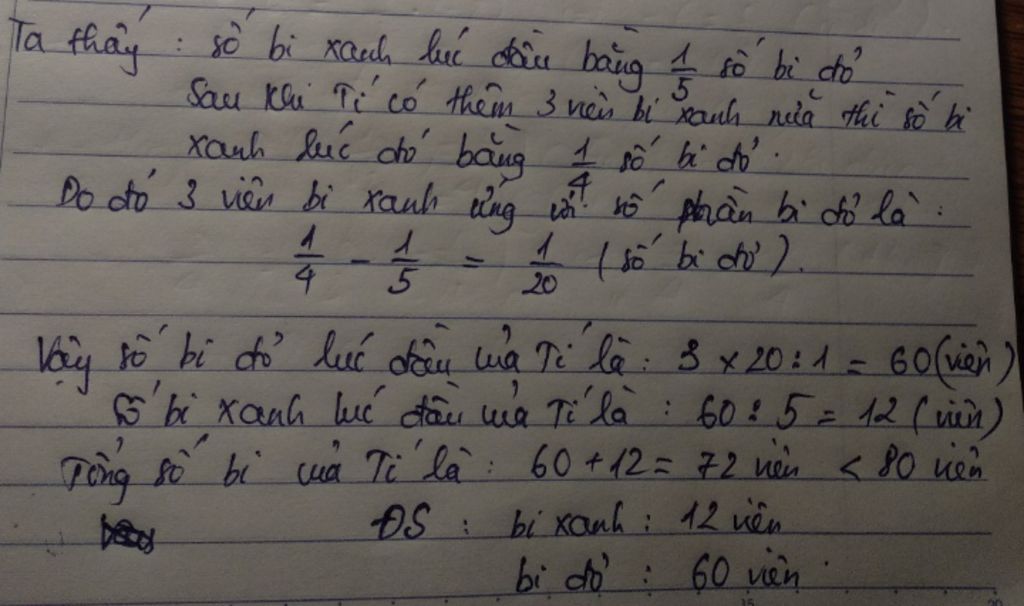 Ta thấy : số bi xanh lúc đầu bằng 1/5 số bi đỏ
Sau khi Tí có thêm 3 viên bi xanh nữa thì số bi
xanh lúc đó bằng 1/4 số bi đỏ.
Do đó 3 viên bi xanh ứng với số phần bi đỏ là :
1/4 - 1/5 = 1/20 (số bi đỏ).
Vậy số bi đỏ lúc đầu của Tí là : 3 x 20 : 1 = 60 (viên)
Số bi xanh lúc đầu của Tí là : 60 : 5 = 12 (viên)
Tổng số bi của Tí là : 60 + 12 = 72 viên < 80 viên
ĐS : bi xanh : 12 viên
bi đỏ : 60 viên